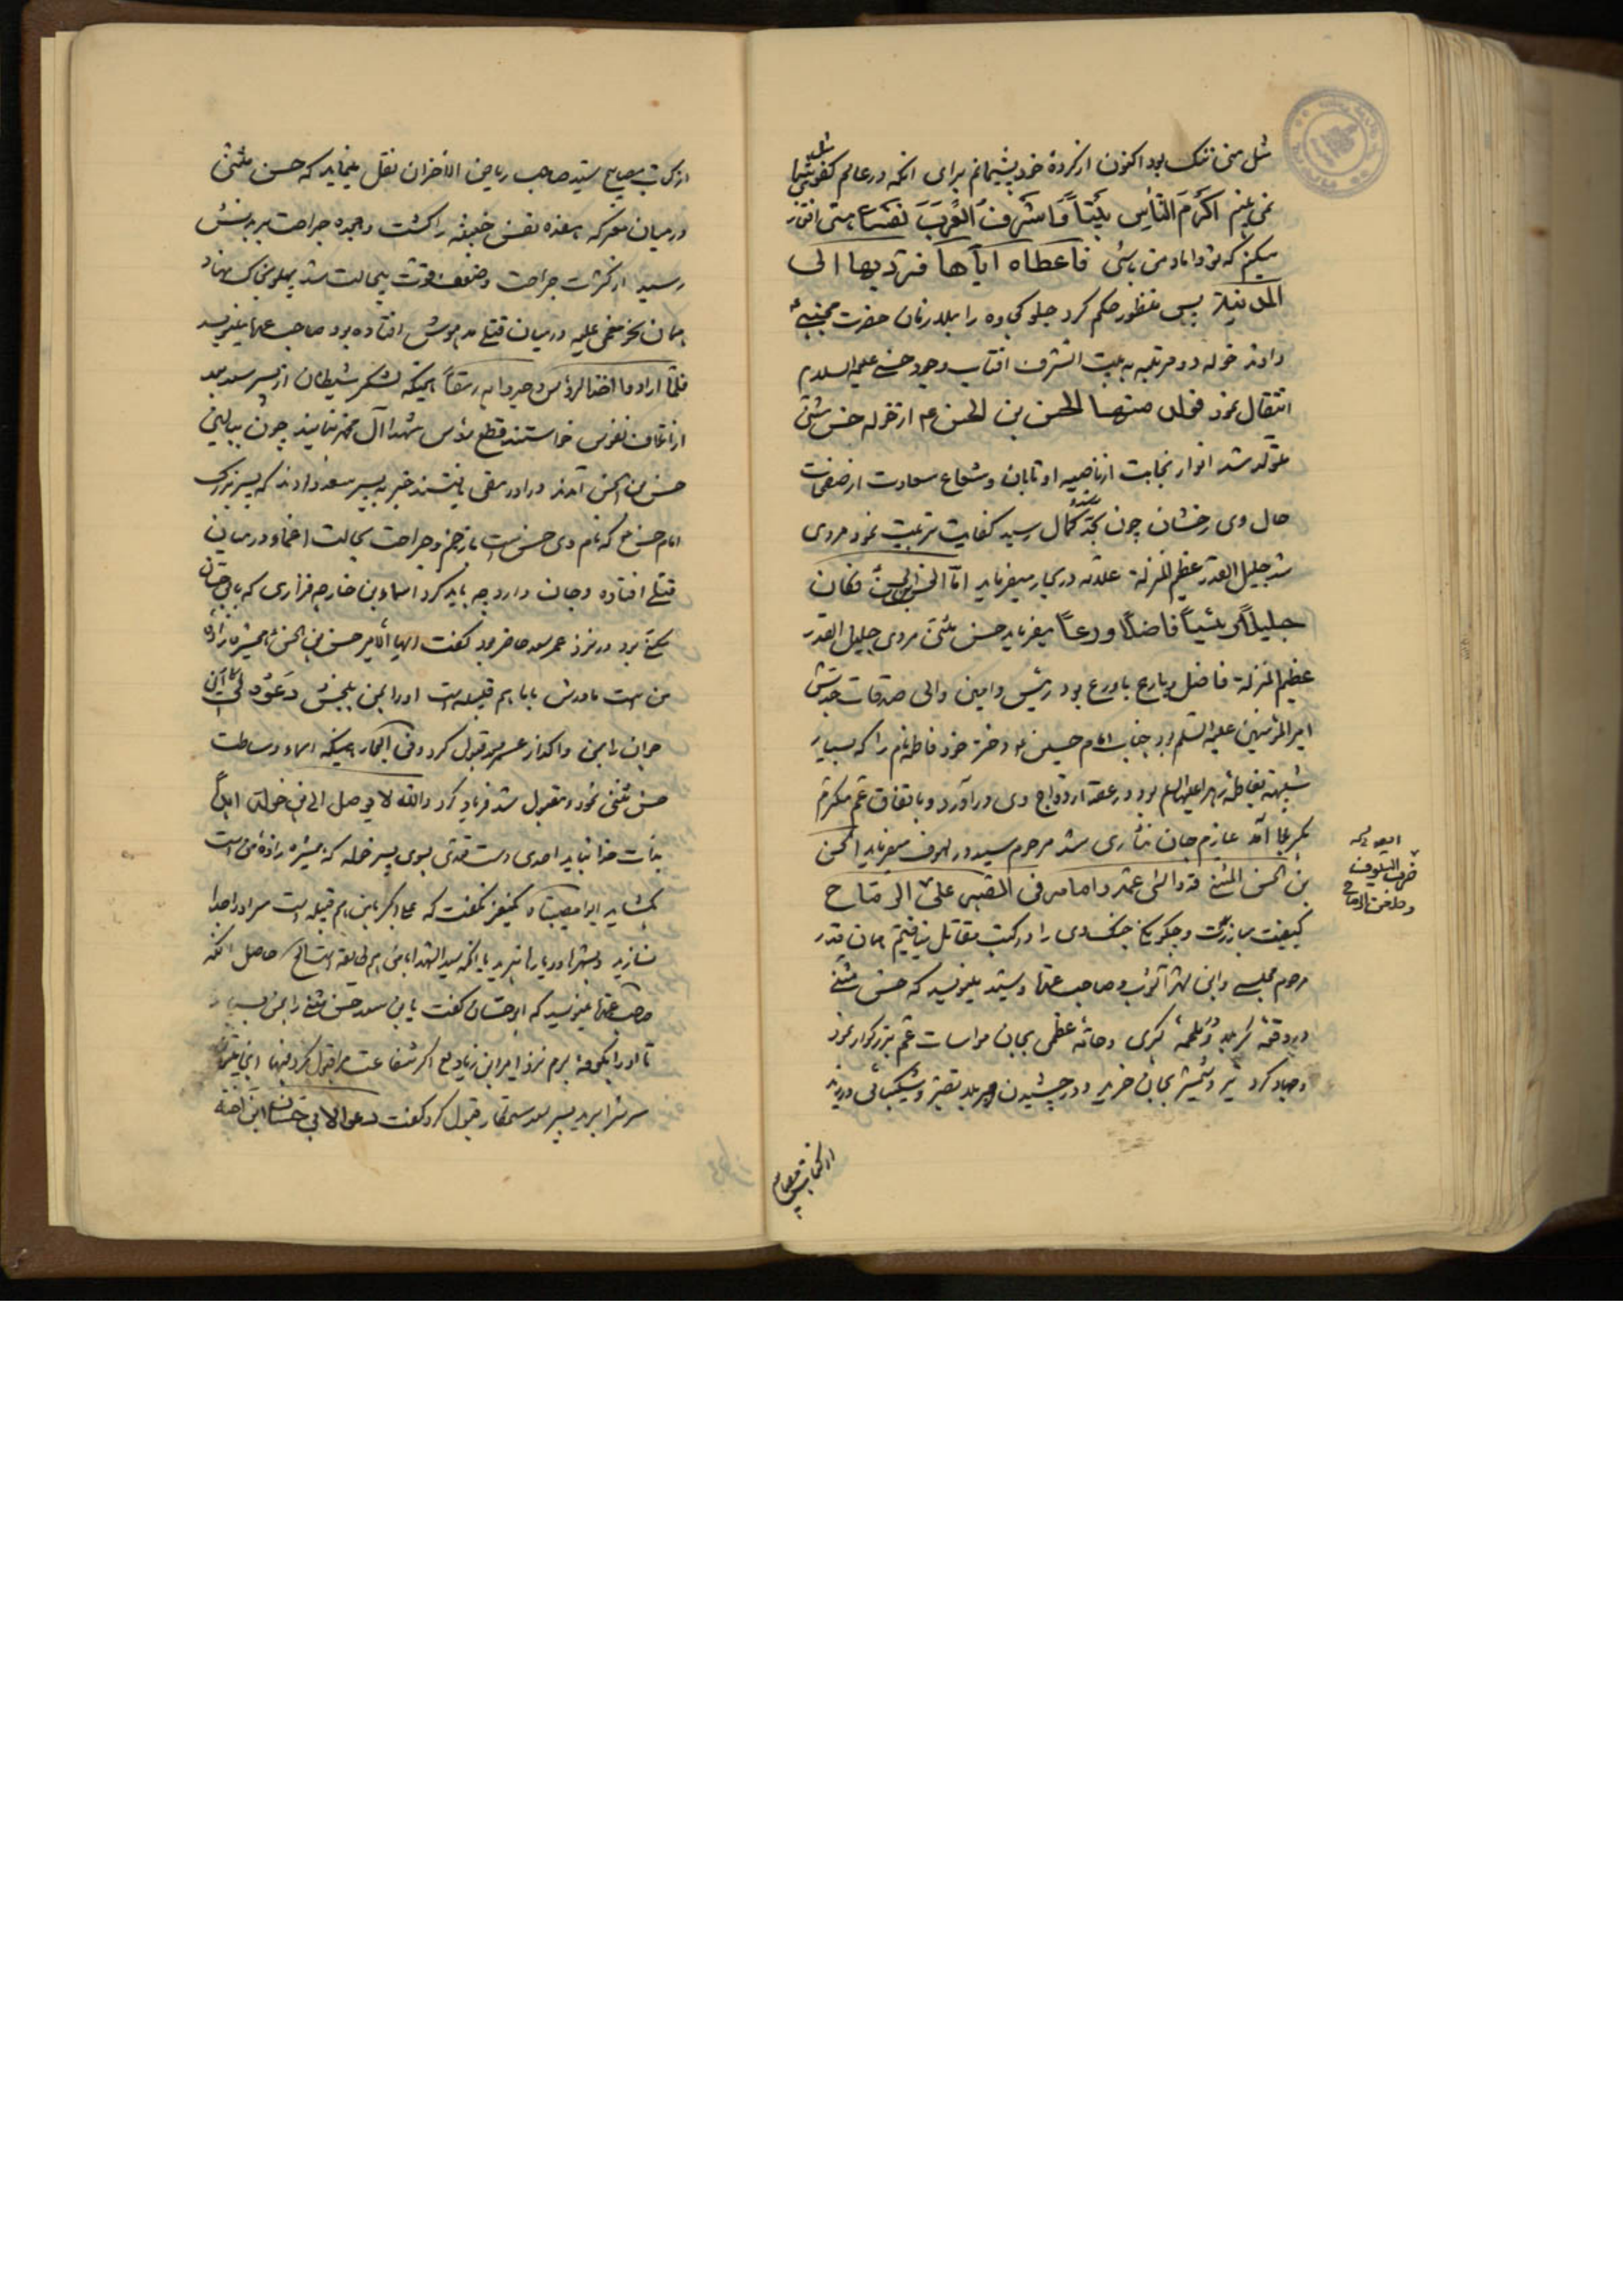 مثل منی ننک بود اکنون از کردهٔ خود پشیمانم برای انکه در عالم کفوی مثل شما
نمی بینم اکرم الناس بیتاً و اشرف العرب نفساً منی افتخار
میکنم که تو داماد من باشی فاعطاه ایاها فردّ بها الی
المدینة پس منظور حکم کرد جلو کجاوه را بملازمان حضرت مجتبی
دادند خوله دو مرتبه به بیت الشرف افتاب وجود حسنی علیه السلام
انتقال نمود فولد منها الحسن بن الحسن ع از خوله حسن مثنی
متولد شد انوار نجابت از ناصیه او تابان و شعاع سعادت از صفحات
حال وی رخشان چون بحد کمال رسید کفایت تربیت نمود مردی
شد جلیل القدر عظیم المنزلة علامه در بحار میفرماید امّا الحسن بن الحسن فکان
جلیلاً رئیساً فاضلاً ورعاً میفرماید حسن مثنی مردی جلیل القدر
عظیم المنزلة فاضل و بارع باورع بود رئیس و امین والی صدقات جدش
امیر المؤمنین علیه السلام بود جناب امام حسین ع دختر خود فاطمه نام را که بسیار
شبیهه بفاطمه زهرا علیها السلام بود در عقد ازدواج وی در آورد و باتفاق عمّ مکرّم
بکربلا آمد عازم جان نثاری شد مرحوم سید در لهوف میفرماید الحسن
بن الحسن المثنی قد واسی عمّه و امامه فی الصبر علی الرماح
کیفیت مبارزت و چکونکی جنک وی را در کتب مقاتل نیافتیم همان قدر
مرحوم مجلسی و ابن شهر آشوب و صاحب عمدة و سید مینویسد که حسن مثنی
در وقعهٔ کربلا و ملحمهٔ کبری و حادثهٔ عظمی بجان مواسات عمّ بزرکوار نمود
و جهاد کرد تیر و شمشیر بجان خرید و در چشیدن
ضرب السیوف
و طعن الرماح
از کتاب مصابیح
از کتاب مصابیح سید صاحب ریاض الاحزان نقل مینماید که حسن مثنی
در میان معرکه هفده نفس خبیثه را کشت و هجده جراحت بر بدنش
رسید از کثرت جراحت و ضعف قوت بیحالت شد پهلو بخاک نهاد
همان نحو مغمی علیه در میان قتلی مدهوش افتاده بود صاحب عمدة مینویسد
فلمّا ارادوا اخذ الرؤس وجدوا به رمقاً همینکه لشکر شیطان از پسر سعد
خواستند قطع رؤس شهدا آل محمد نمایند چون ببالین
حسن بن الحسن آمدند در او رمقی یافتند خبر به پسر سعد دادند که پسر بزرک
امام حسن ع که نام وی حسن است با زخم و جراحت بحالت اغما در میان
قتلی افتاده و جان دارد چه باید کرد اسماء بن خارجه فزاری که بابی حسان
مکنّی بود در نزد عمر سعد حاضر بود کفت ایها الامیر حسن بن الحسن همشیره زادهٔ
من است مادرش با ما هم قبیله است او را بمن ببخش دعوه لی این
جوان را بمن واکذار عمر سعد قبول کرد و فی البحار همینکه اسماء وساطت
حسن مثنی نمود و مقبول شد فریاد کرد والله لا یوصل الی ابن خولة ابداً
بذات خدا نباید احدی دست تعدّی بسوی پسر خوله که همشیره زادهٔ من است
بکشاید
نسازید
صاحب عمدة مینویسد که ابو حسان کفت یابن سعد حسن مثنی را بمن بسپار
تا او را بکوفه برم نزد امیر ابن زیاد اکر شفاعت مرا قبول کرد فبها
سرش را ببرید پسر سعد ستمکار قبول کرد و کفت دعوا لابی حسان ابن اخته